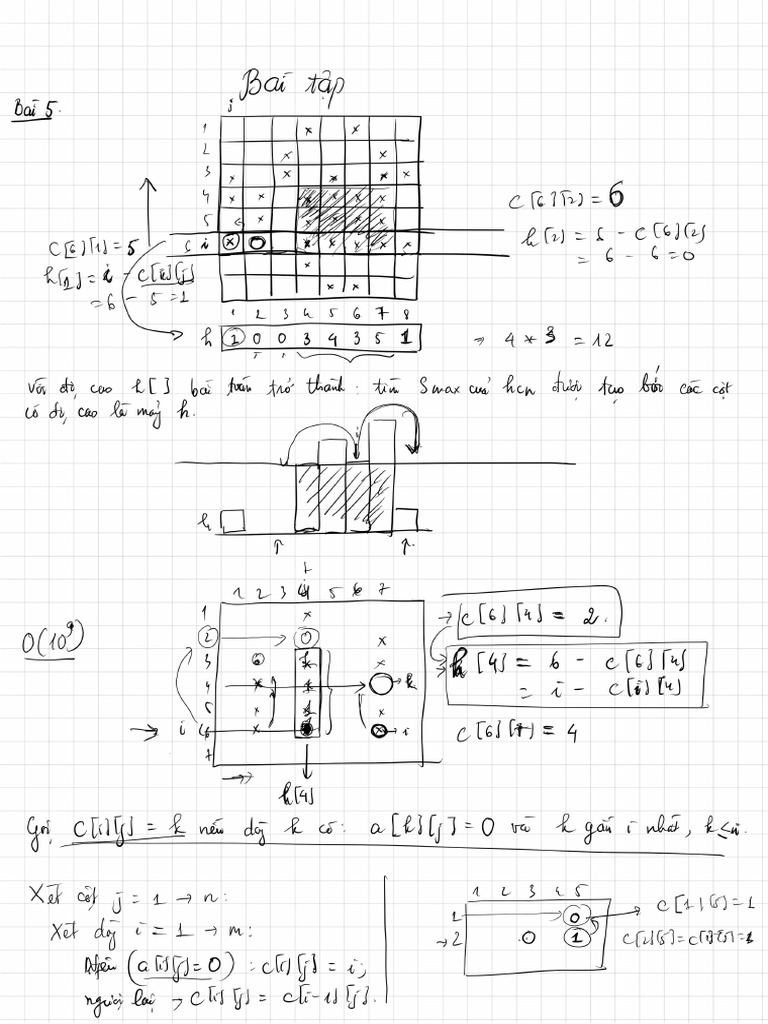 Bài tập
Bài 5.
j
1
2
3
4
5
6 i
1 2 3 4 5 6 7 8
h 1 0 0 3 4 3 5 1
C[6][1] = 5
h[1] = i - C[i][j]
= 6 - 5 = 1
C[6][2] = 6
h[2] = 6 - C[6][2]
= 6 - 6 = 0
→ 4 * 3 = 12
Với độ cao h[] bài toán trở thành: tìm Smax của hcn được tạo bởi các cột
có độ cao là mảng h.
i
h
O(10^9)
1 2 3 4 5 6 7
1
2 0
3
4 k
5
i 6 i
7
h[4]
→ C[6][4] = 2.
h[4] = 6 - C[6][4]
= i - C[i][4]
C[6][7] = 4
Gọi C[i][j] = k nếu dòng k có: a[k][j] = 0 và k gần i nhất, k ≤ i.
Xét cột j = 1 → n:
Xét dòng i = 1 → m:
Nếu (a[i][j] = 0) : C[i][j] = i;
ngược lại → C[i][j] = C[i-1][j].
1 2 3 4 5
1 0
→ 2 0 1
C[1][5] = 1
C[2][5] = C[1][5] = 1